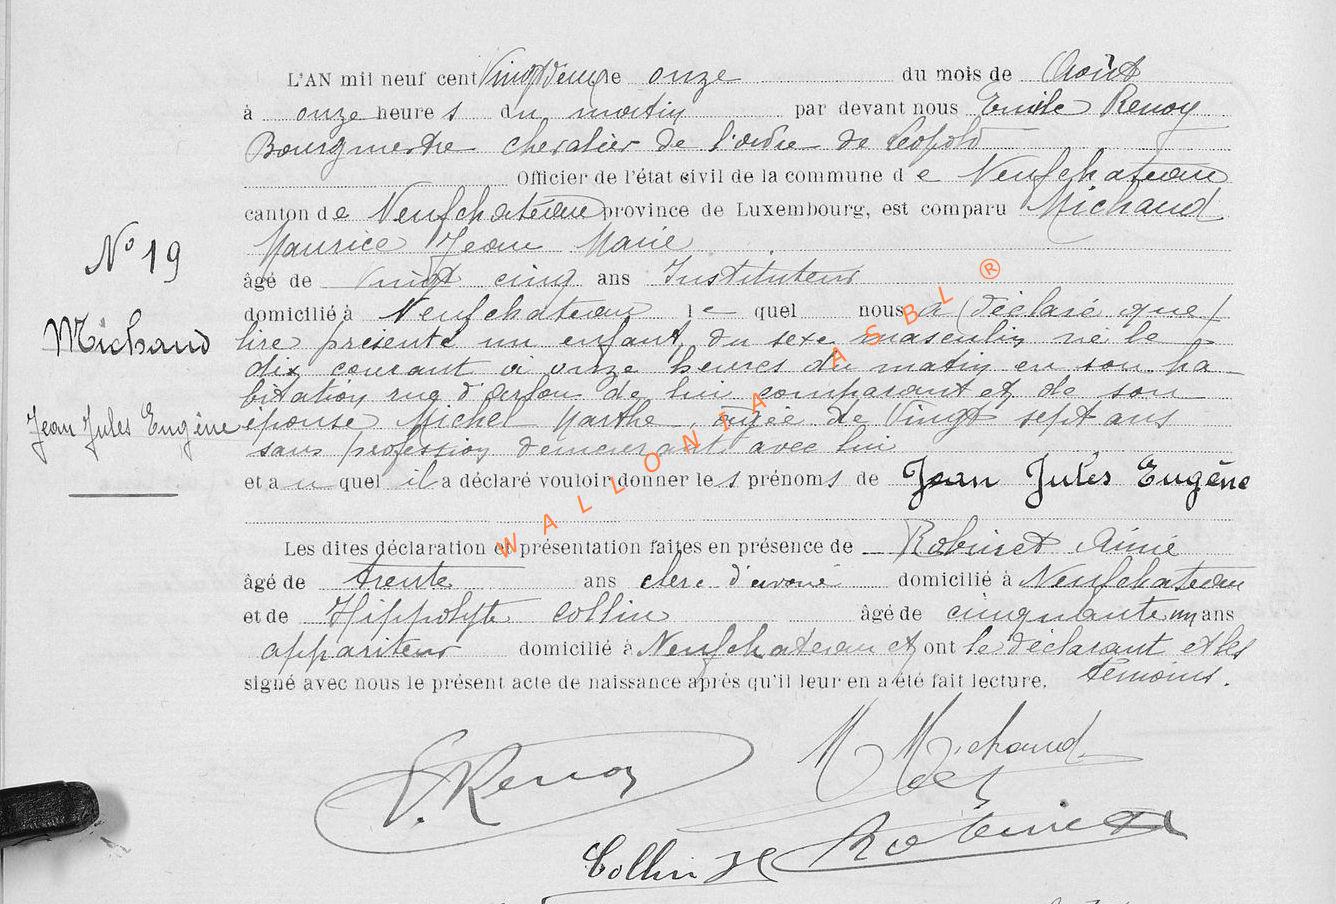 L'AN mil neuf cent Vingt deux le onze du mois de Août
à onze heures du matin par devant nous Emile Renoy
Bourgmestre chevalier de l'ordre de Léopold
Officier de l'état civil de la commune de Neufchateau
canton de Neufchâteau province de Luxembourg, est comparu Michaud
Maurice Jean Marie
N° 19
âgé de vingt cinq ans Instituteur
domicilié à Neufchateau le quel nous a déclaré que
Michaud
présenté un enfant du sexe masculin né le
dix courant à onze heures du matin en son ha-
bitation rue d'arlon de lui comparant et de son
Jean Jules Eugène
épouse Michel Marthe, agée de Vingt sept ans
sans profession demeurant avec lui
et au quel il a déclaré vouloir donner les prénoms de Jean Jules Eugène
Les dites déclaration et présentation faites en présence de Robinet Aimé
âgé de trente ans clerc d'avoué domicilié à Neufchateau
et de Hippolyte Collin âgé de cinquante un ans
appariteur domicilié à Neufchateau et ont le déclarant et les
signé avec nous le présent acte de naissance après qu'il leur en a été fait lecture. témoins.
WALLONIA ASBL ®
E. Renoy
M Michaud
Robinet
Collin H